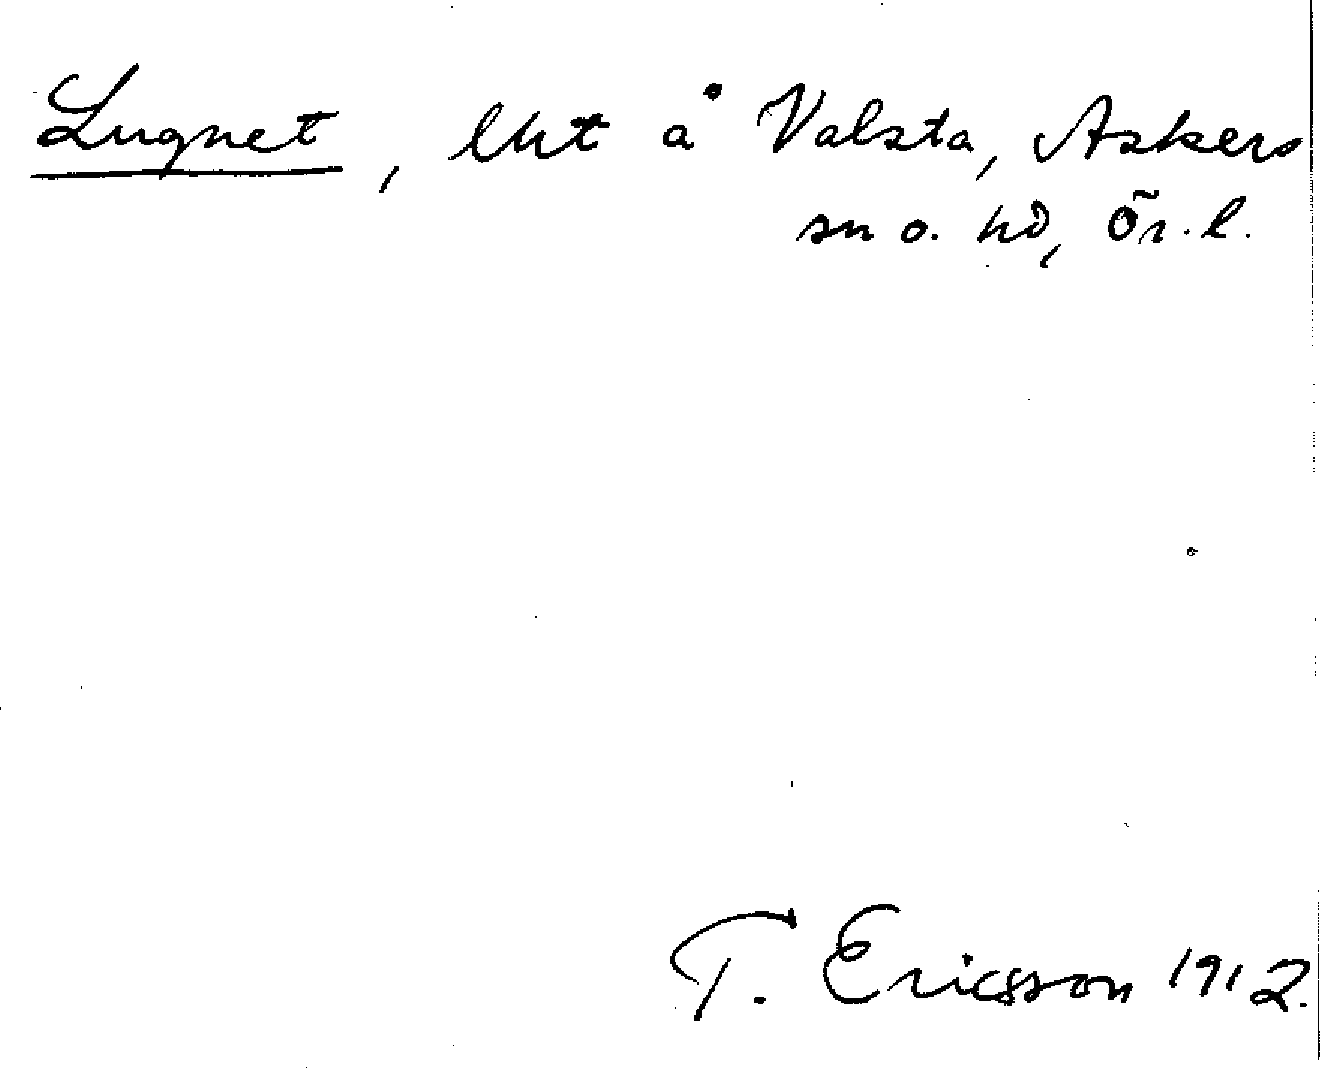 Lugnet, lht å Valsta, Askers
sn o. hd, Ör. l.
T. Ericsson 1912.